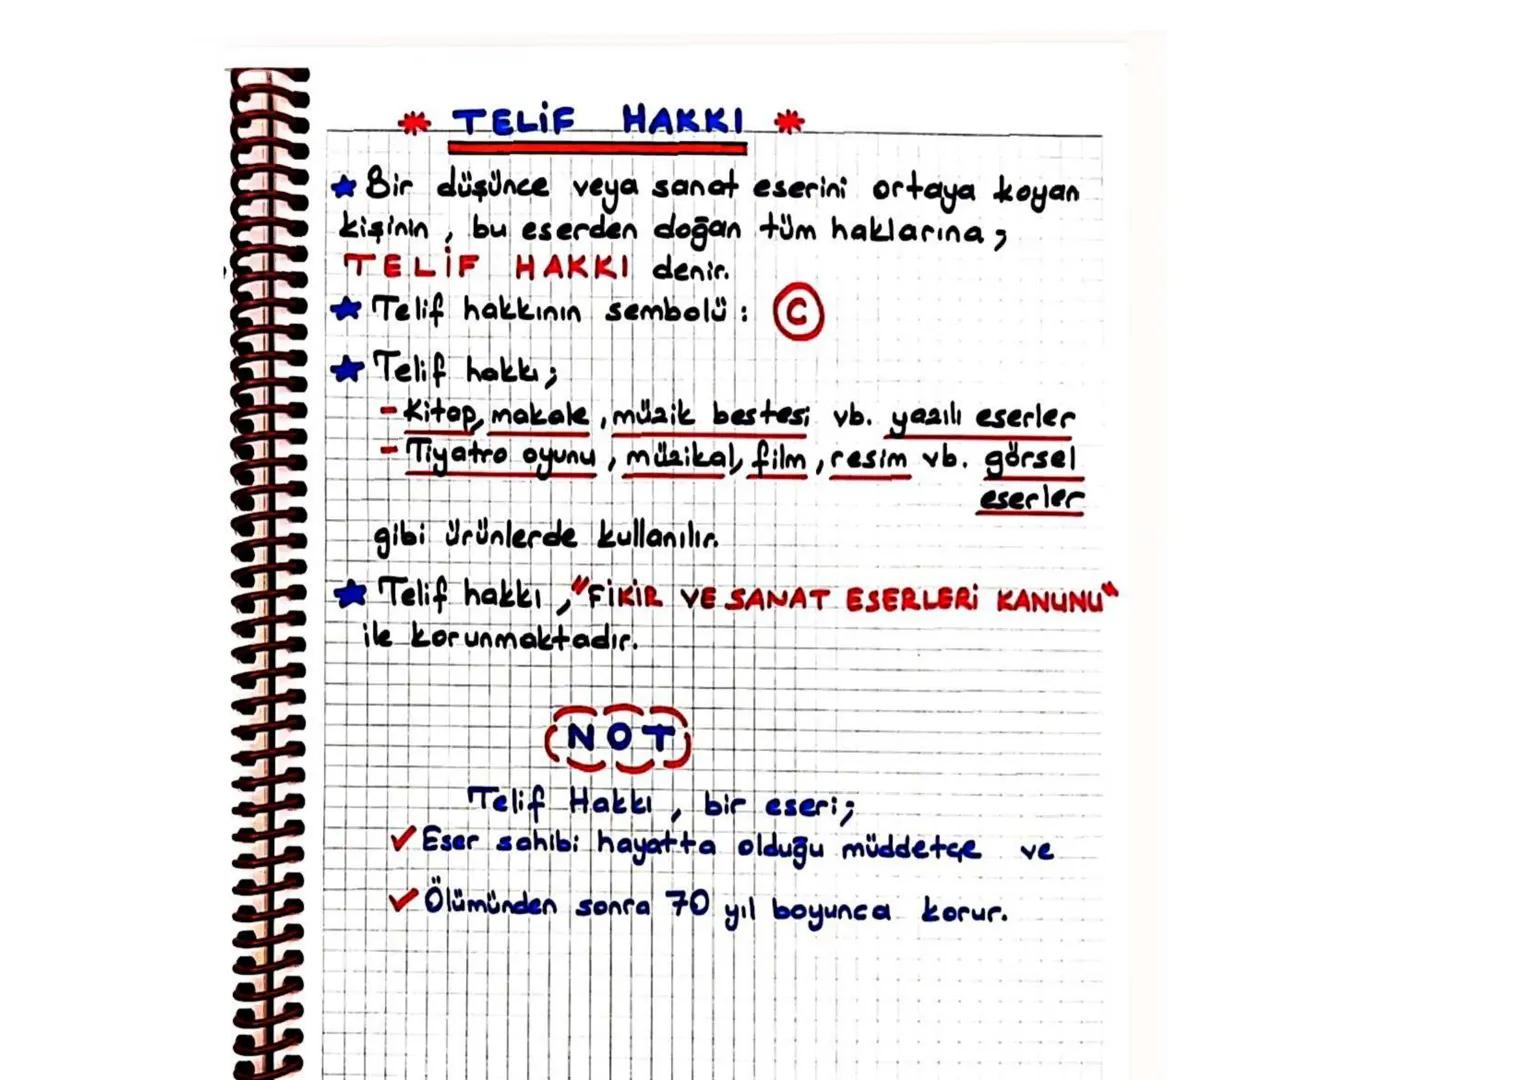 * TELİF HAKKI *
★ Bir düşünce veya sanat eserini ortaya koyan
kişinin, bu eserden doğan tüm haklarına;
TELİF HAKKI denir.
★ Telif hakkının sembolü: ©
★ Telif hakkı;
- Kitap, makale, müzik bestesi vb. yazılı eserler
- Tiyatro oyunu, müzikal, film, resim vb. görsel
eserler
gibi ürünlerde kullanılır.
★ Telif hakkı, "FİKİR VE SANAT ESERLERİ KANUNU"
ile korunmaktadır.
NOT
Telif Hakkı, bir eseri;
✓ Eser sahibi hayatta olduğu müddetçe ve
✓ Ölümünden sonra 70 yıl boyunca korur.